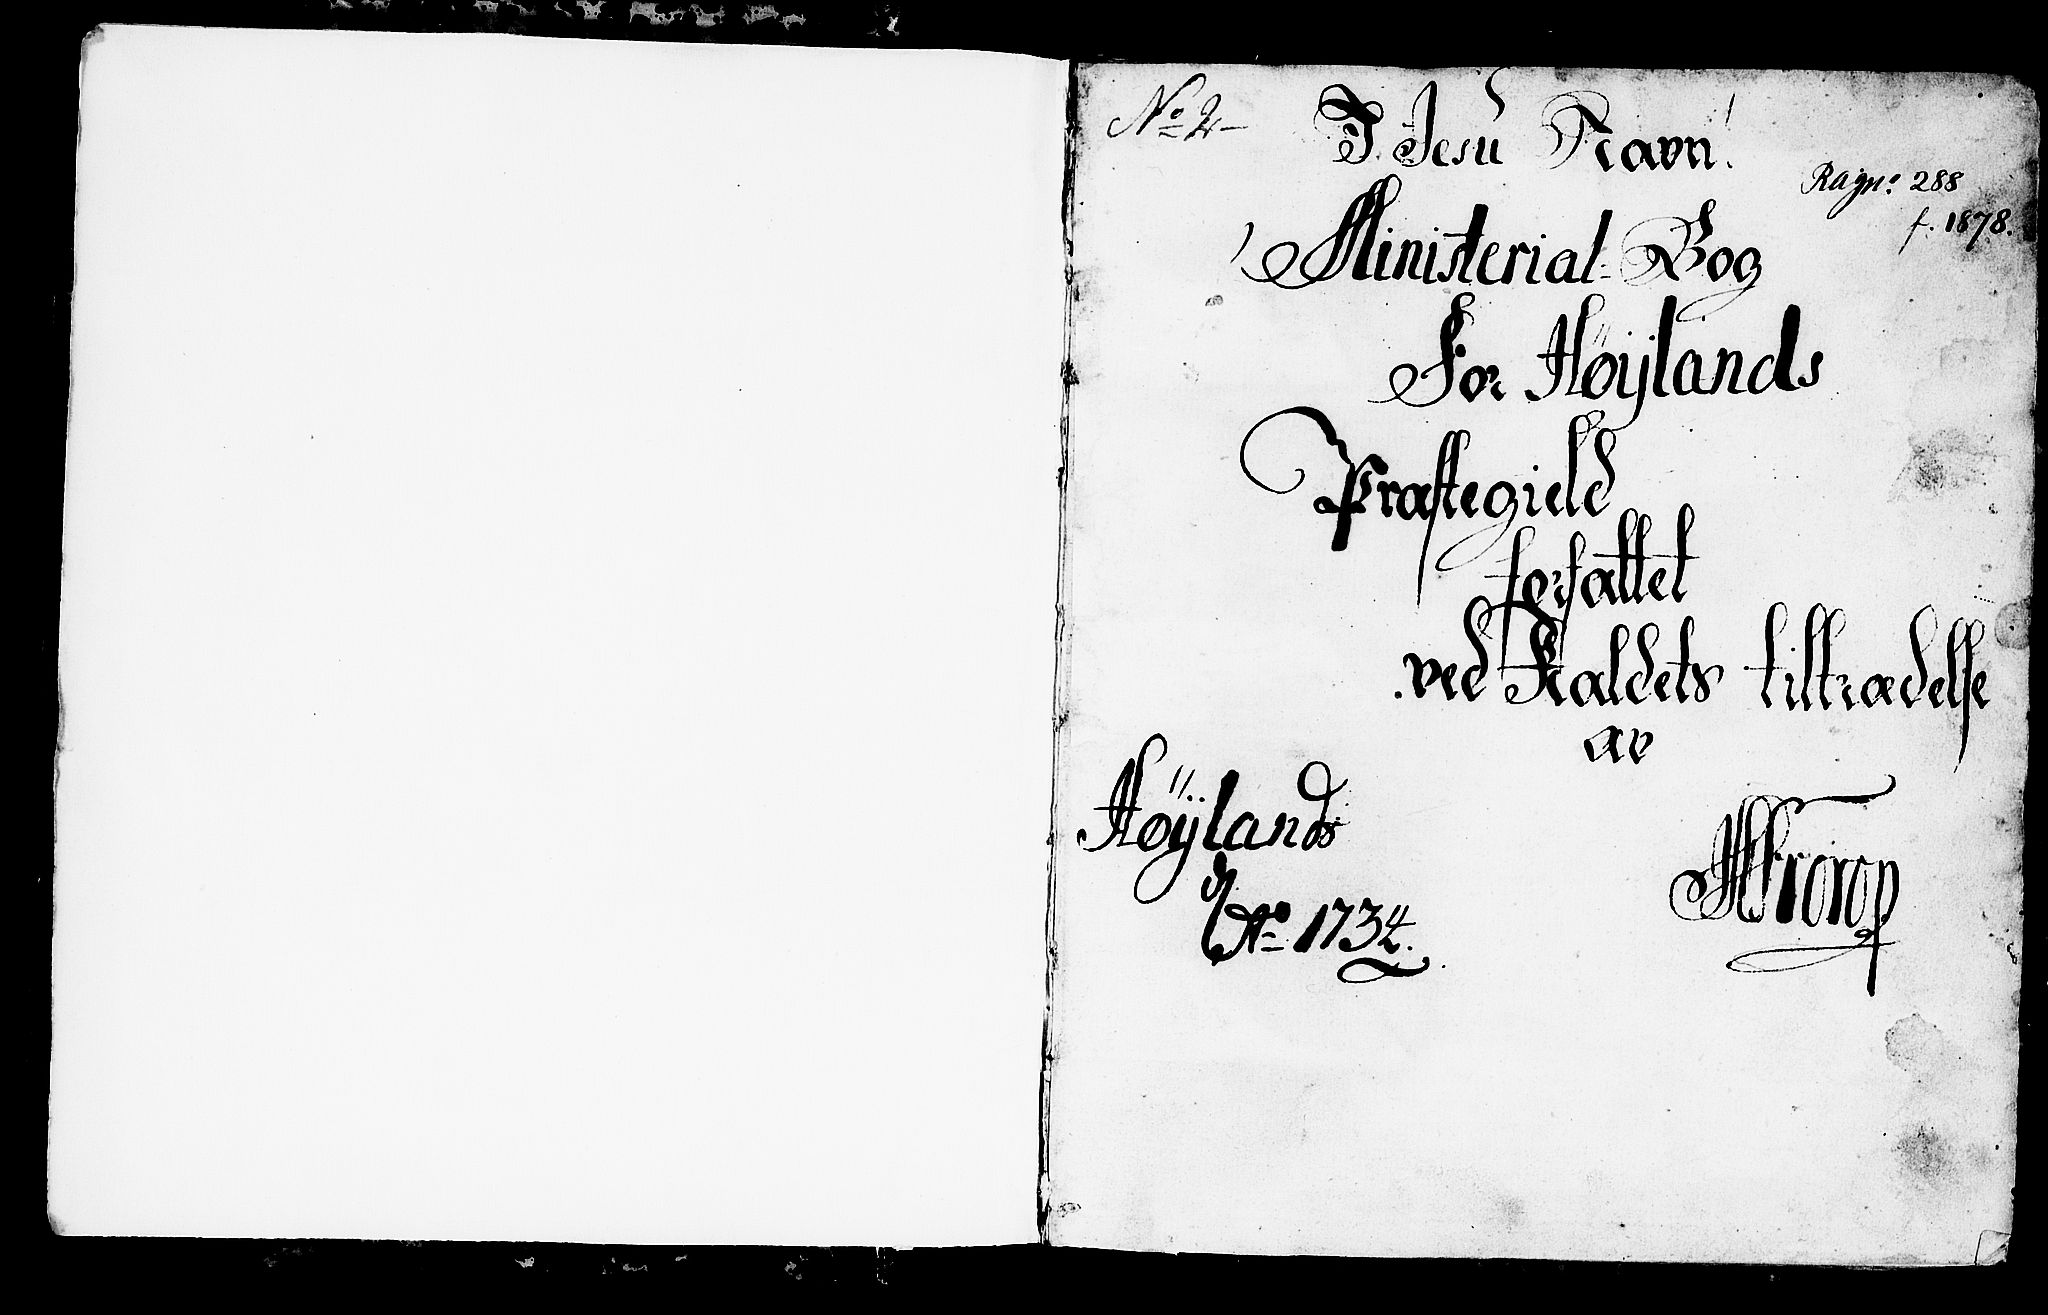 No 2
I Jesu Navn!
Ragn: 288
f. 1878.
Ministerial-Bog
For Høÿlands
Præstegield
forfattet
ved Kaldets tiltrædelse
av
Høÿlands
Ao 1734.